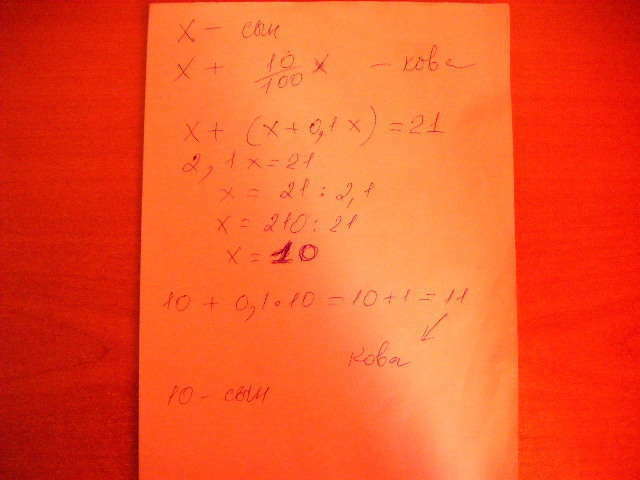 x - сын
x + 10/100 x - кова
x + (x + 0,1 x) = 21
2,1 x = 21
x = 21 : 2,1
x = 210 : 21
x = 10
10 + 0,1 · 10 = 10 + 1 = 11
кова
10 - сын